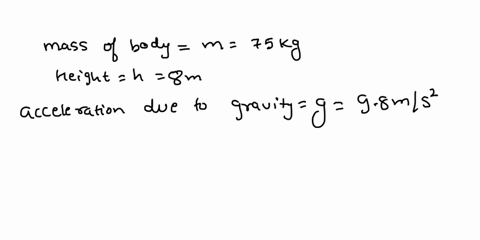 mass of body = m = 75 kg
height = h = 8m
acceleration due to gravity = g = 9.8 m/s²